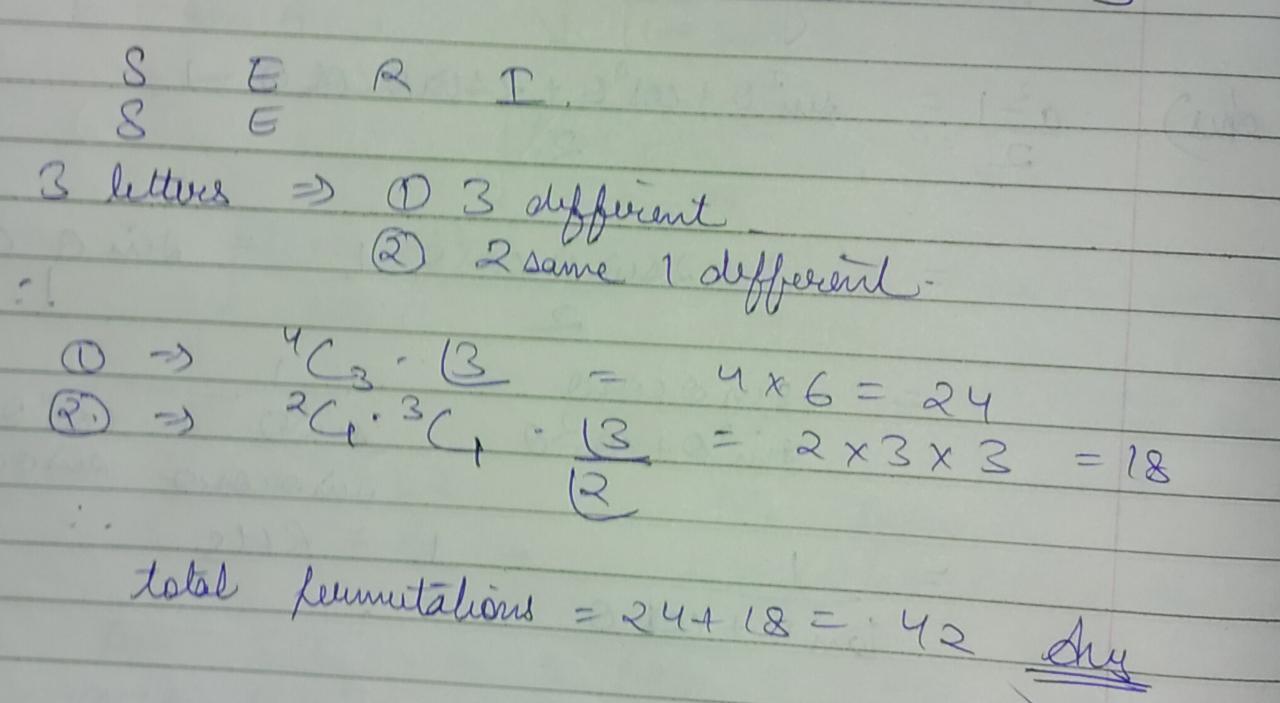 S E R I.
S E
3 letters ⇒ ① 3 different
② 2 same 1 different.
∴
① ⇒ ⁴C₃ · ∟3 = 4 × 6 = 24
② ⇒ ²C₁ · ³C₁ · ∟3/∟2 = 2 × 3 × 3 = 18
∴
total permutations = 24 + 18 = 42 Ans